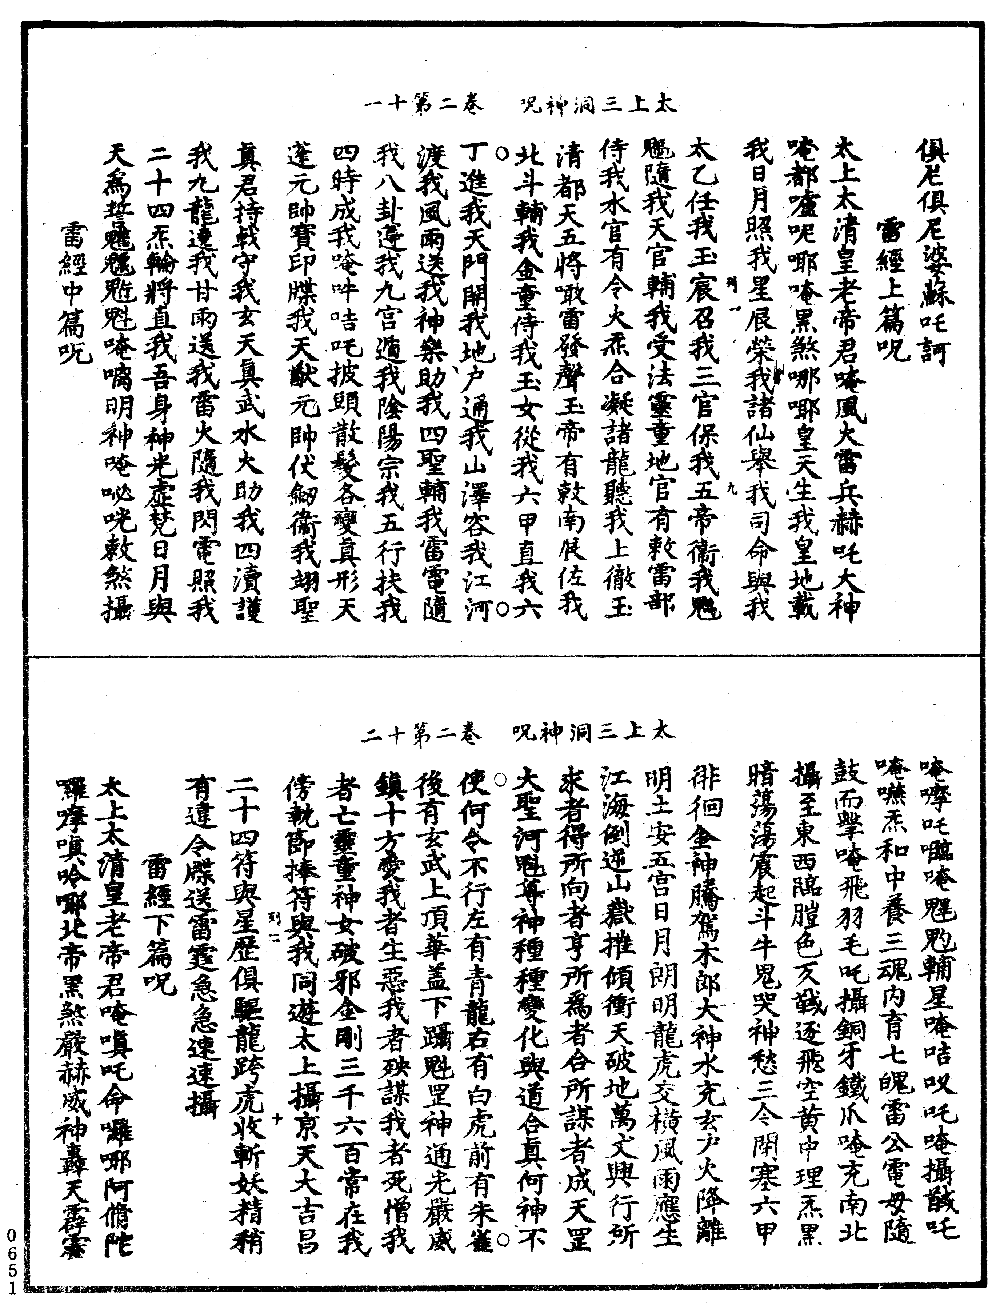 太上三洞神呪　卷二第十一
俱尼俱尼娑蘇吒訶
雷經上篇呪
太上太清皇老帝君唵風火雷兵赫吒大神
唵都嚧呢哪唵黑煞哪哪皇天生我皇地載
我日月照我星辰榮我諸仙舉我司命與我
太乙任我玉宸召我三官保我五帝衞我魁
魁隨我天官輔我受法靈童地官有敕雷部
侍我水官有令火炁合凝諸龍聽我上徹玉
清都天五將噉雷發聲玉帝有敕南辰佐我
北斗輔我金童侍我玉女從我六甲直我六
丁進我天門開我地户通我山澤容我江河
渡我風雨送我神樂助我四聖輔我雷電隨
我八卦遵我九宫遁我陰陽宗我五行扶我
四時成我唵吽咭吒披頭散髮各變真形天
蓬元帥寶印牒我天猷元帥伏劒衞我翊聖
真君持戟守我玄天真武水火助我四瀆護
我九龍連我甘雨送我雷火隨我閃電照我
二十四炁輪將直我吾身神光虛梵日月與
天爲誓唵嚙明神唵咇咣敕煞攝
雷經中篇呪
太上三洞神呪　卷二第十二
唵嚤吒唵輔星唵咭㕥吒唵攝吒
唵嚥炁和中養三魂内育七魄雷公電母隨
鼓而擊唵飛羽毛吒攝銅牙鐵爪唵充南北
攝至東西臨膛色交戰逐飛空黄中理炁黑
暗蕩蕩震起斗牛鬼哭神愁三令開塞六甲
徘徊金神騰駕木郎大神水充玄户火降離
明土安五宫日月朗明龍虎交橫風雨應生
江海倒逆山嶽摧傾衝天破地萬丈興行所
求者得所向者亨所爲者合所謀者成天罡
大聖河魁尊神種種變化與道合真何神不
使何令不行左有青龍右有白虎前有朱雀
後有玄武上頂華蓋下躡魁罡神通光嚴威
鎮十方愛我者生惡我者殃謀我者死憎我
者亡靈童神女破邪金剛三千六百常在我
傍執節捧符與我同遊太上攝京天大吉昌
二十四符與星歷俱驅龍跨虎收斬妖精稍
有違令牒送雷霆急急速速攝
雷經下篇呪
太上太清皇老帝君唵嗔吒命囉哪阿脩陀
羅嚤嗔呤哪北帝黑煞嚴赫威神轟天霹靂
0651